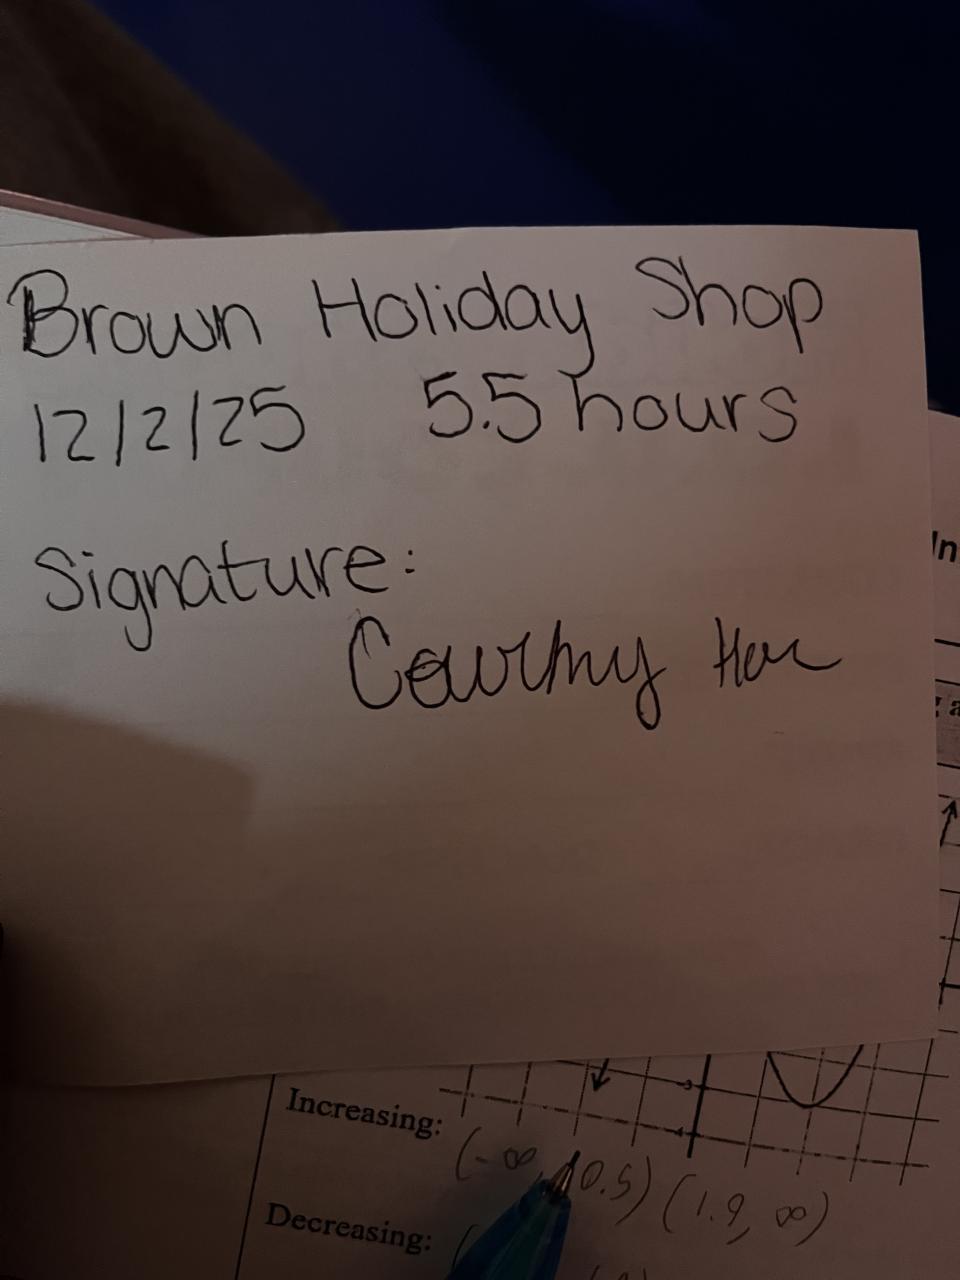 Brown Holiday Shop
12/2/25 5.5 hours
Signature:
In
Increasing:
(-∞, 0.5) (1.9, ∞)
Decreasing: